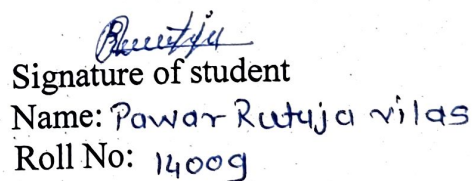 Signature of student
Name: Pawar Rutuja vilas
Roll No: 14009